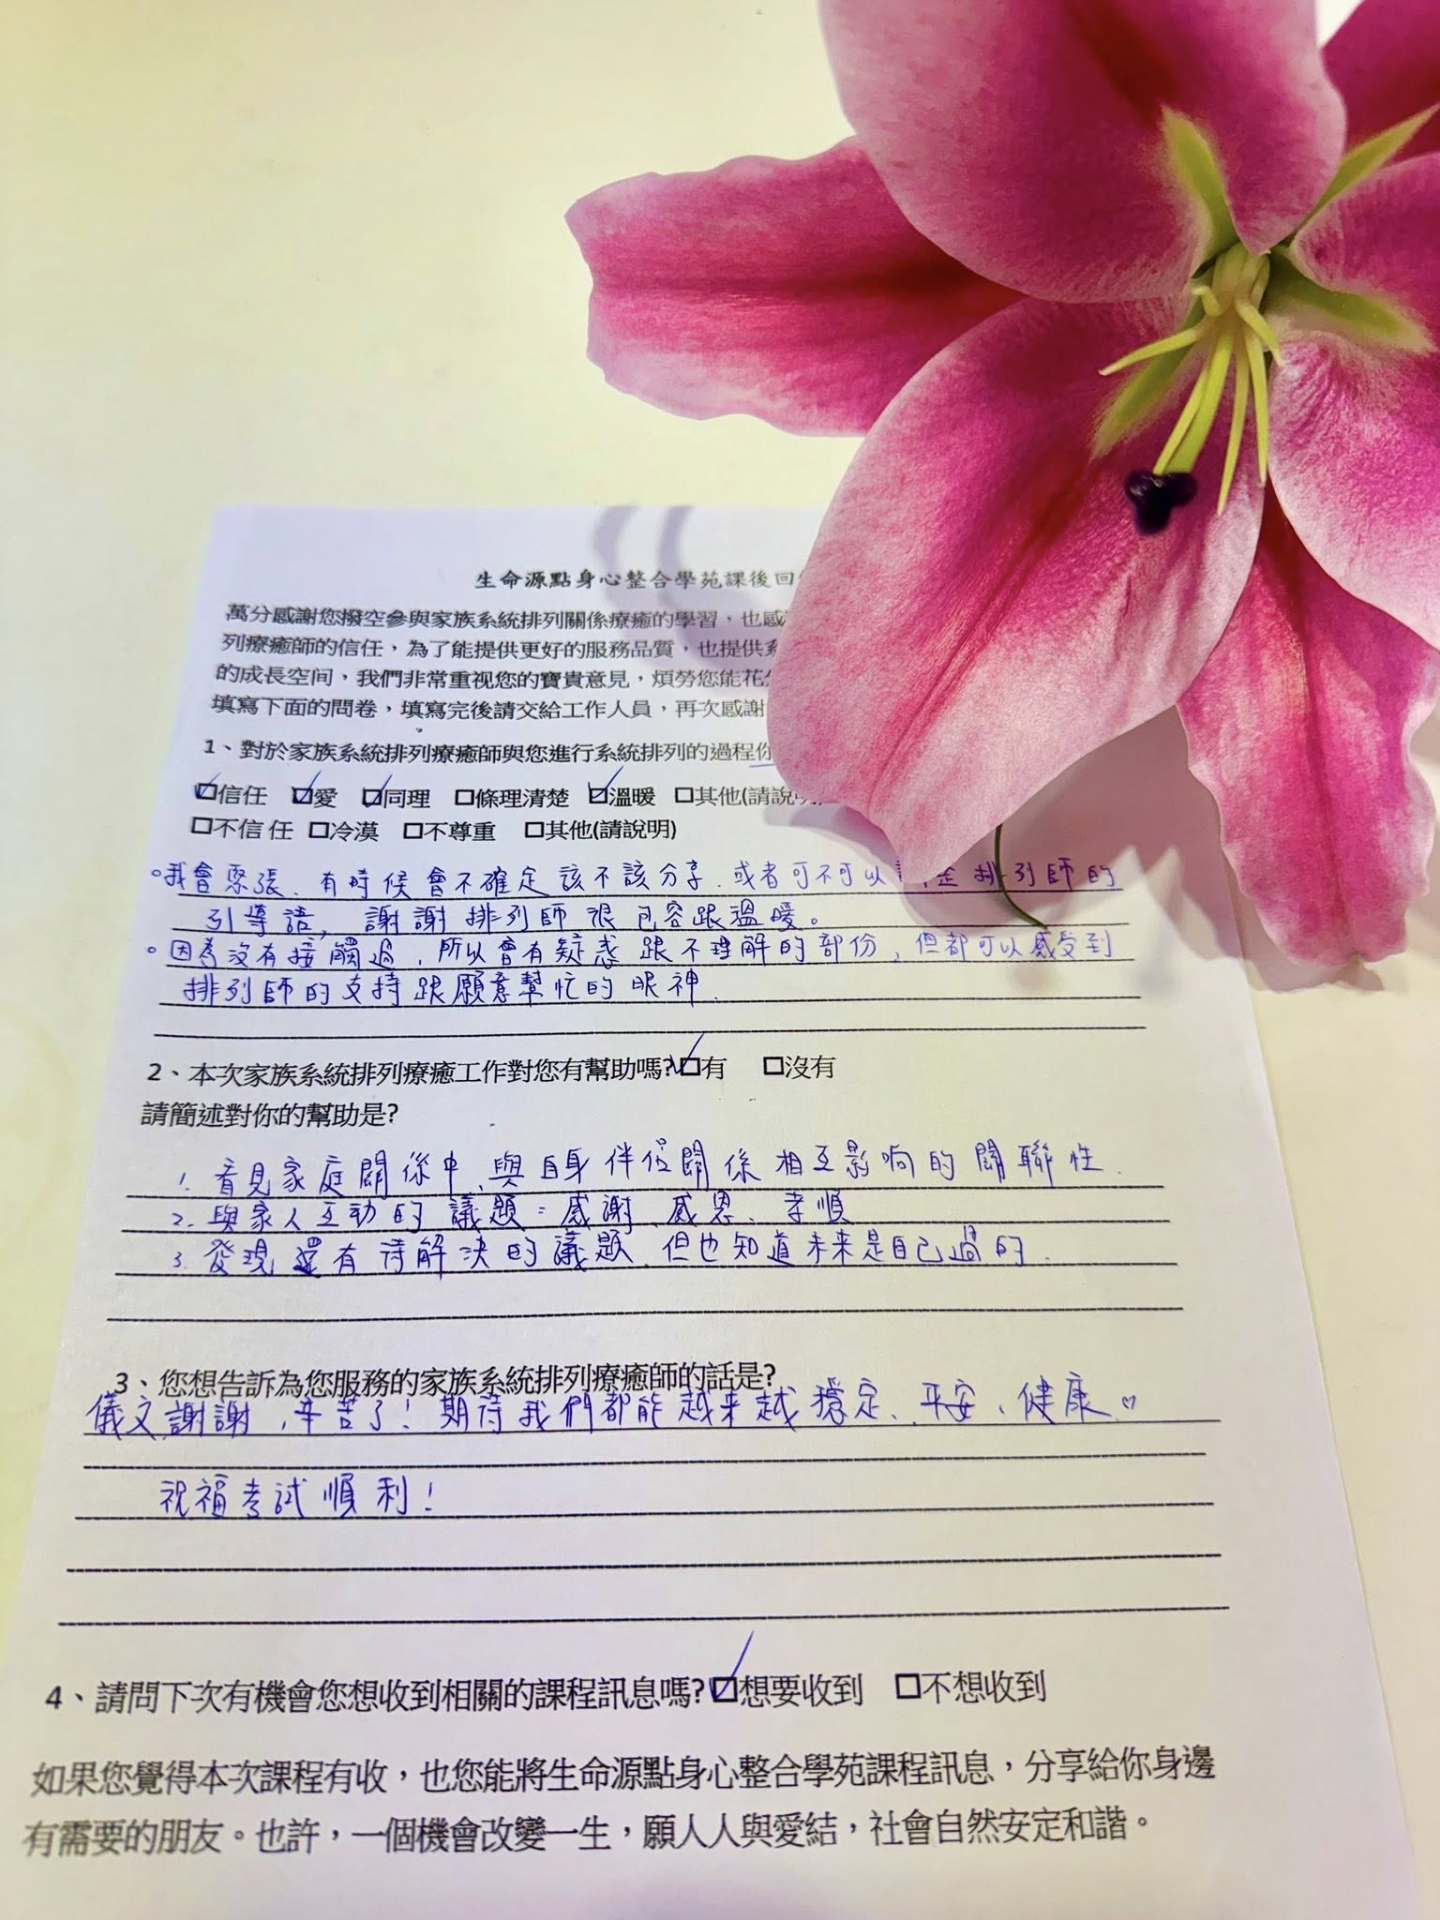 生命源點身心整合學苑課後回
萬分感謝您撥空參與家族系統排列關係療癒的學習，也感
列療癒師的信任，為了能提供更好的服務品質，也提供系
的成長空间，我們非常重視您的寶貴意見，煩勞您能花
填寫下面的問卷，填寫完後請交給工作人員，再次感謝
1、對於家族系統排列療癒師與您進行系統排列的過程你
☑信任 ☑愛 ☑同理 □條理清楚 ☑溫暖 □其他(請說明)
□不信 任 □冷漠 □不尊重 □其他(請說明)
。我會緊張、有時候會不確定該不該分享、或者可不可以 排列師的
引導語，謝謝排列師很包容跟溫暖。
。因為沒有接觸過，所以會有疑惑跟不理解的部份，但都可以感受到
排列師的支持跟願意幫忙的眼神.
2、本次家族系統排列療癒工作對您有幫助嗎?☑有 □沒有
請簡述對你的幫助是?
1. 看見家庭關係中、與自身伴侶關係相互影响的關聯性.
2. 與家人互動的議題：感謝、感恩、孝順
3. 發現還有待解決的議題、但也知道未來是自己過的.
3、您想告訴為您服務的家族系統排列療癒師的話是?
儀文謝謝，辛苦了！期待我們都能越來越穩定、平安、健康。♡
祝福考試順利！
4、請問下次有機會您想收到相關的課程訊息嗎?☑想要收到 □不想收到
如果您覺得本次課程有收，也您能將生命源點身心整合學苑課程訊息，分享給你身邊
有需要的朋友。也許，一個機會改變一生，願人人與愛結，社會自然安定和諧。